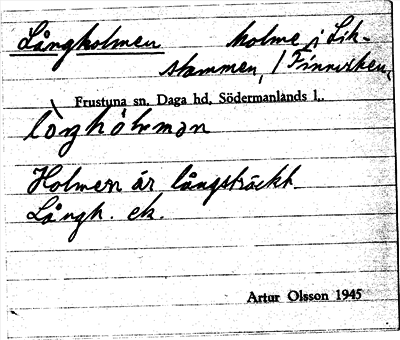 Långholmen holme i Lik-
stammen, / Finnviken,
Frustuna sn, Daga hd, Södermanlands l..
Holmen är långsträckt.
Långh. ek.
Artur Olsson 1945